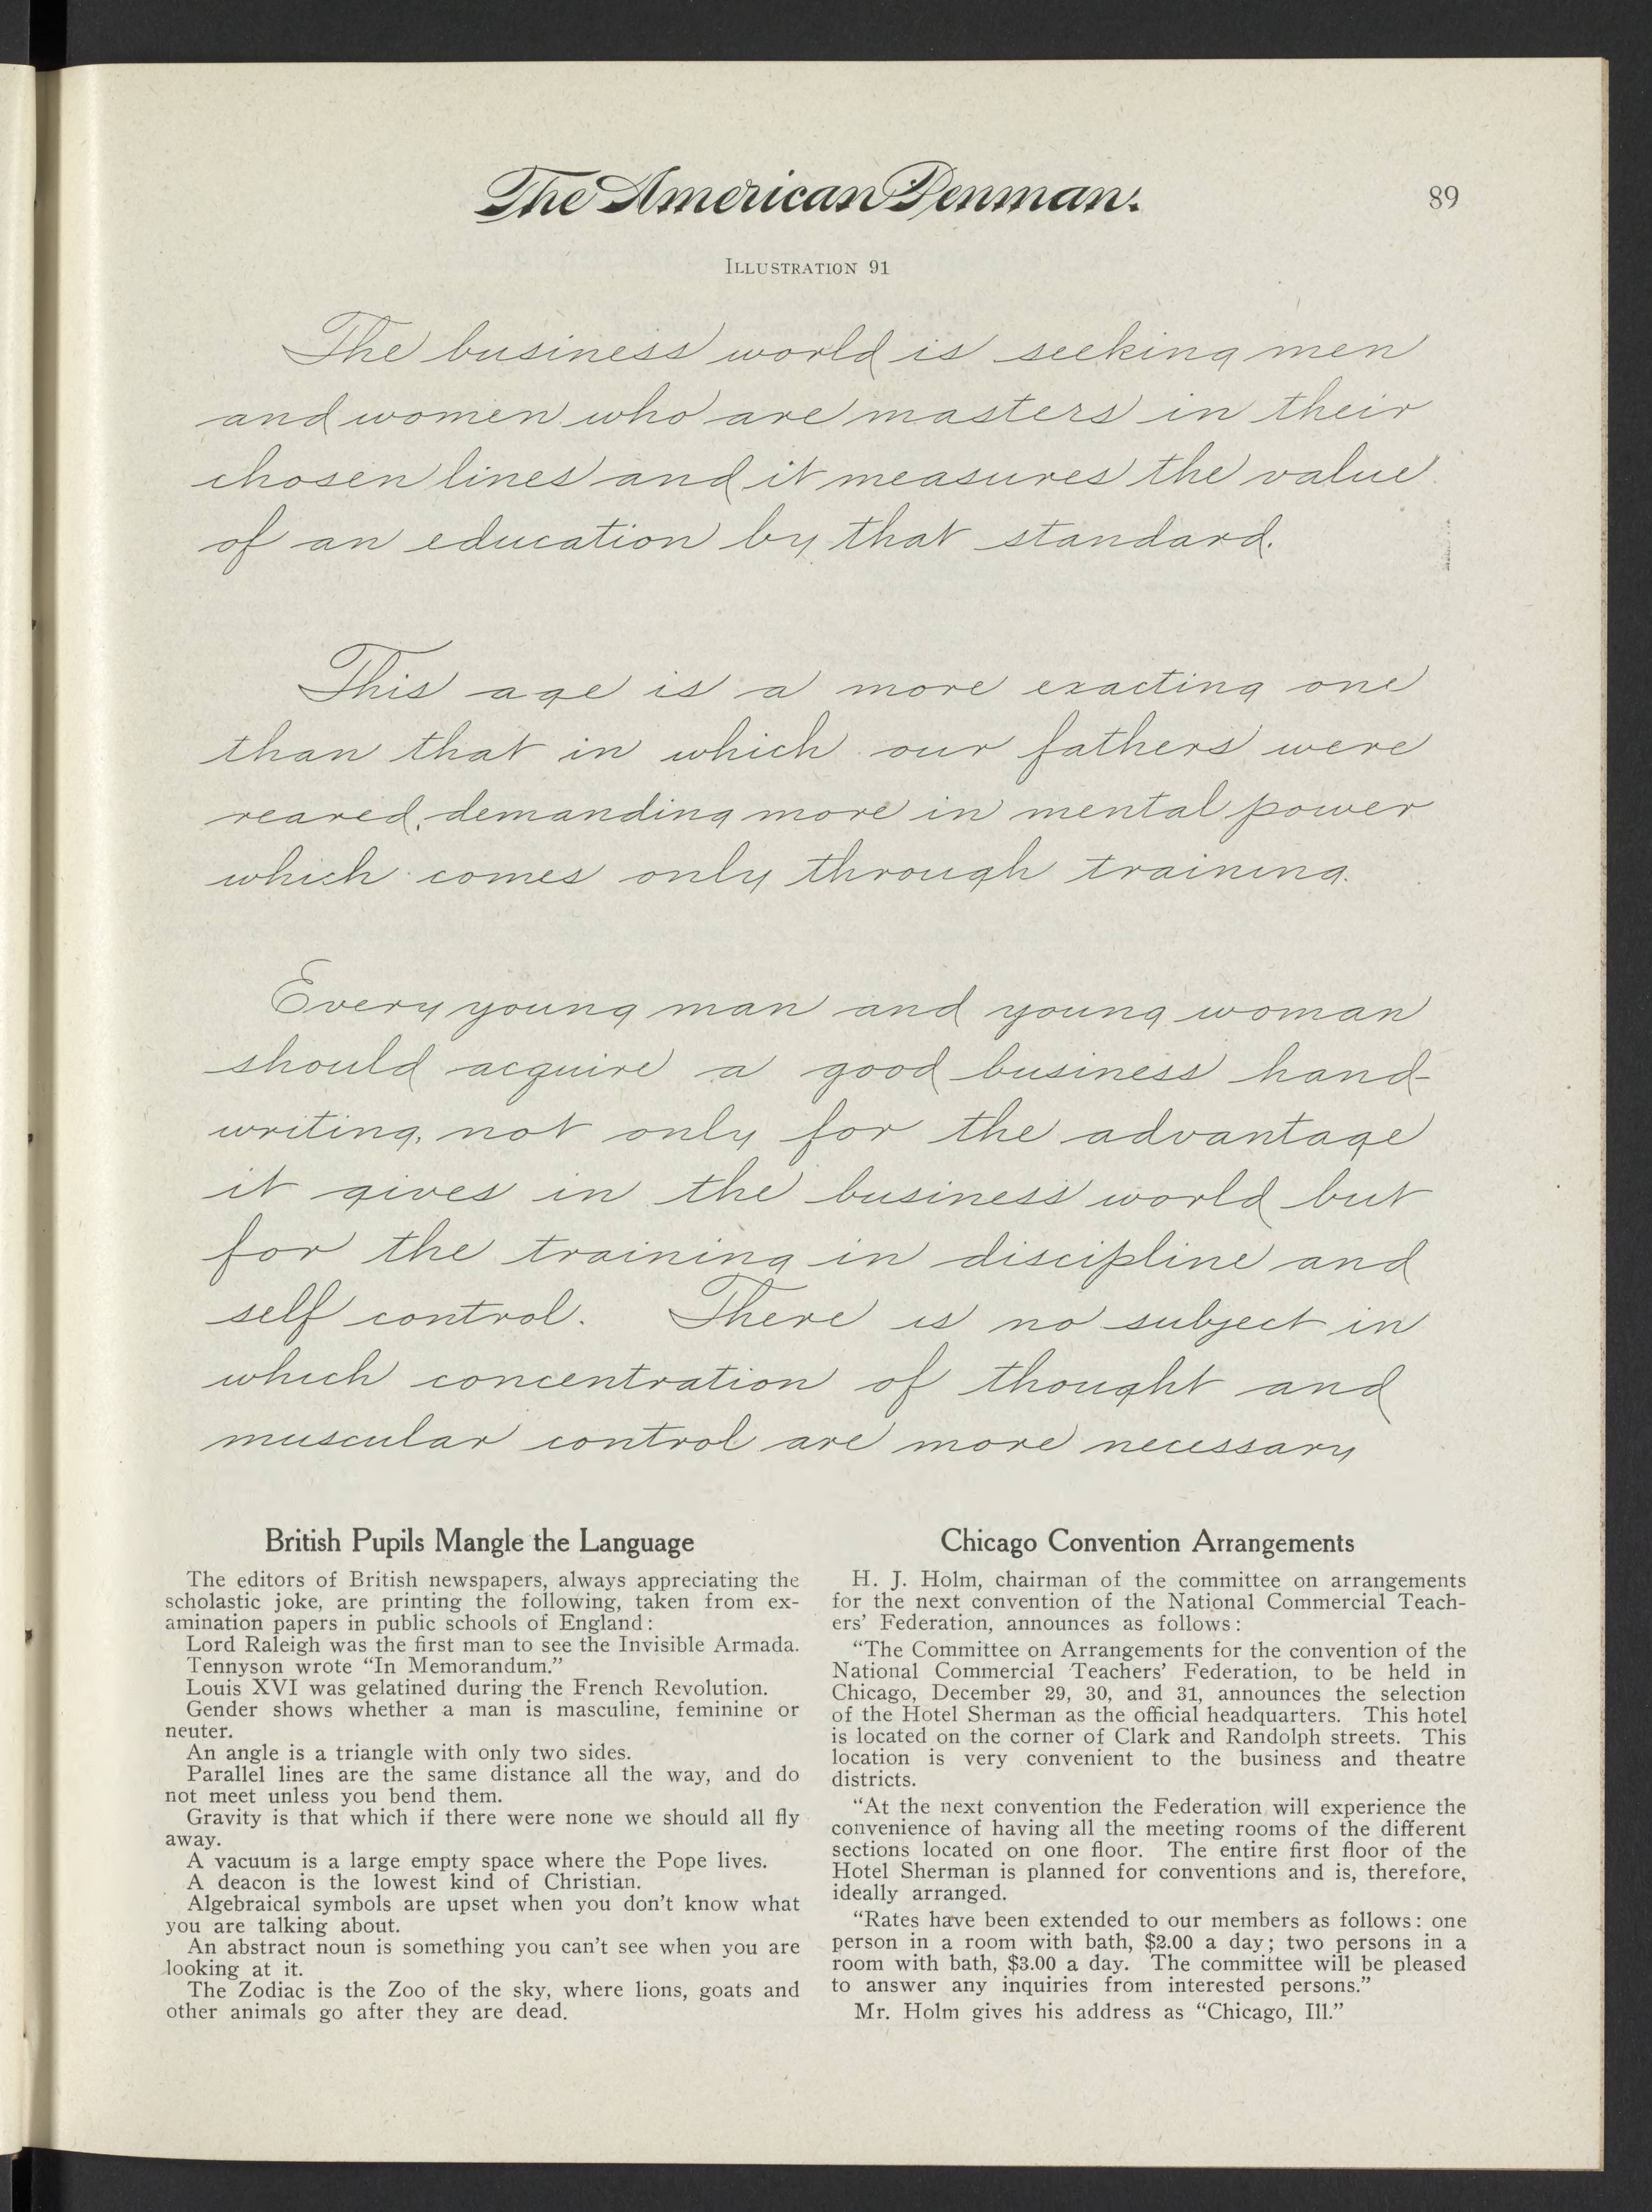 The American Penman.
89
ILLUSTRATION 91
The business world is seeking men
and women who are masters in their
chosen lines and it measures the value
of an education by that standard.
This age is a more exacting one
than that in which our fathers were
reared, demanding more in mental power
which comes only through training.
Every young man and young woman
should acquire a good business hand-
writing, not only for the advantage
it gives in the business world but
for the training in discipline and
self control. There is no subject in
which concentration of thought and
muscular control are more necessary
British Pupils Mangle the Language
The editors of British newspapers, always appreciating the
scholastic joke, are printing the following, taken from ex-
amination papers in public schools of England:
Lord Raleigh was the first man to see the Invisible Armada.
Tennyson wrote “In Memorandum.”
Louis XVI was gelatined during the French Revolution.
Gender shows whether a man is masculine, feminine or
neuter.
An angle is a triangle with only two sides.
Parallel lines are the same distance all the way, and do
not meet unless you bend them.
Gravity is that which if there were none we should all fly
away.
A vacuum is a large empty space where the Pope lives.
A deacon is the lowest kind of Christian.
Algebraical symbols are upset when you don’t know what
you are talking about.
An abstract noun is something you can’t see when you are
looking at it.
The Zodiac is the Zoo of the sky, where lions, goats and
other animals go after they are dead.
Chicago Convention Arrangements
H. J. Holm, chairman of the committee on arrangements
for the next convention of the National Commercial Teach-
ers’ Federation, announces as follows:
“The Committee on Arrangements for the convention of the
National Commercial Teachers’ Federation, to be held in
Chicago, December 29, 30, and 31, announces the selection
of the Hotel Sherman as the official headquarters. This hotel
is located on the corner of Clark and Randolph streets. This
location is very convenient to the business and theatre
districts.
“At the next convention the Federation will experience the
convenience of having all the meeting rooms of the different
sections located on one floor. The entire first floor of the
Hotel Sherman is planned for conventions and is, therefore,
ideally arranged.
“Rates have been extended to our members as follows: one
person in a room with bath, $2.00 a day; two persons in a
room with bath, $3.00 a day. The committee will be pleased
to answer any inquiries from interested persons.”
Mr. Holm gives his address as “Chicago, Ill.”